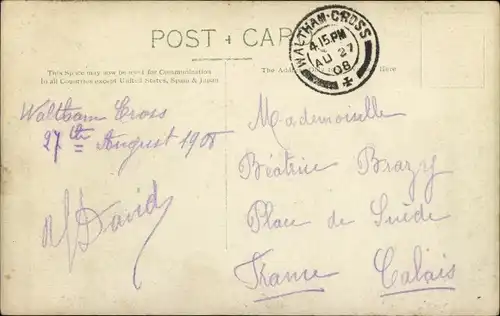 POST + CA
WALTHAM-CROSS
4.15 PM
AU 27
08
This Space may now be used for Communication
in all Countries except United States, Spain & Japan
The Add
Here
Waltham Cross
27th August 1908
David
Mademoiselle
Béatrice Brazy
Place de Suède
France Calais